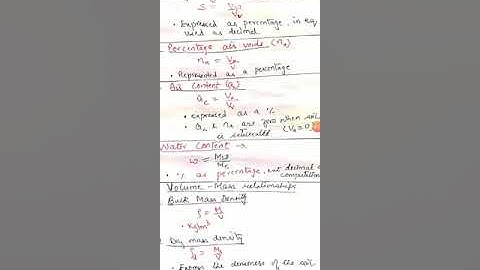 S = Vw/Vv
• Expressed as percentage, in eq
used as decimal
Percentage air voids (na)
na = Va/V
• Represented as a percentage
Air Content (ac)
ac = Va/Vv
• expressed as a %
• ac & na are zero when soil
is saturated (Va=0)
Water Content →
w = Mw/Ms
• % as percentage, but decimal
computation
Volume-Mass relationships
Bulk Mass Density
ρ = M/V
• Kg/m³
Dry mass density
ρd = Ms/V
• Express the denseness of the soil